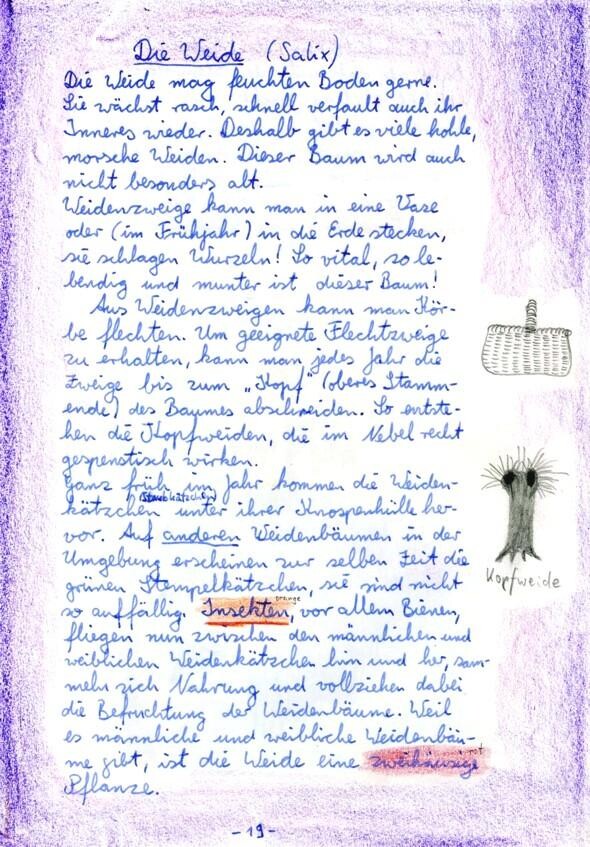 Die Weide (Salix)
Die Weide mag feuchten Boden gerne.
Sie wächst rasch, schnell verfault auch ihr
Inneres wieder. Deshalb gibt es viele hohle,
morsche Weiden. Dieser Baum wird auch
nicht besonders alt.
Weidenzweige kann man in eine Vase
oder (im Frühjahr) in die Erde stecken,
sie schlagen Wurzeln! So vital, so le-
bendig und munter ist dieser Baum!
Aus Weidenzweigen kann man Kör-
be flechten. Um geeignete Flechtzweige
zu erhalten, kann man jedes Jahr die
Zweige bis zum „Kopf" (oberes Stamm-
ende) des Baumes abschneiden. So entste-
hen die Kopfweiden, die im Nebel recht
gespenstisch wirken.
Ganz früh im Jahr kommen die Weiden-
(Staubkätzchen)
kätzchen unter ihrer Knospenhülle her-
vor. Auf anderen Weidenbäumen in der
Umgebung erscheinen zur selben Zeit die
grünen Stempelkätzchen, sie sind nicht
orange
so auffällig. Insekten, vor allem Bienen,
fliegen nun zwischen den männlichen und
weiblichen Weidenkätzchen hin und her, sam-
meln sich Nahrung und vollziehen dabei
die Befruchtung der Weidenbäume. Weil
es männliche und weibliche Weidenbäu-
rot
me gibt, ist die Weide eine zweihäusige
Pflanze.
Kopfweide
- 19 -